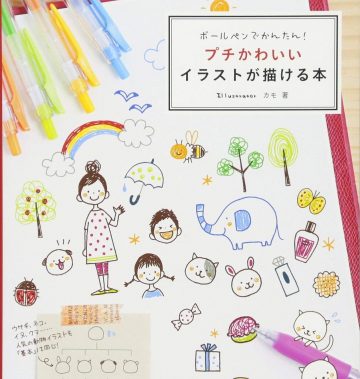 ボールペンでかんたん!
プチかわいい
イラストが描ける本
Illustrator カモ 著
ウサギ、ネコ、
イヌ、クマ……
人気の動物イラストも
「基本」は同じ!